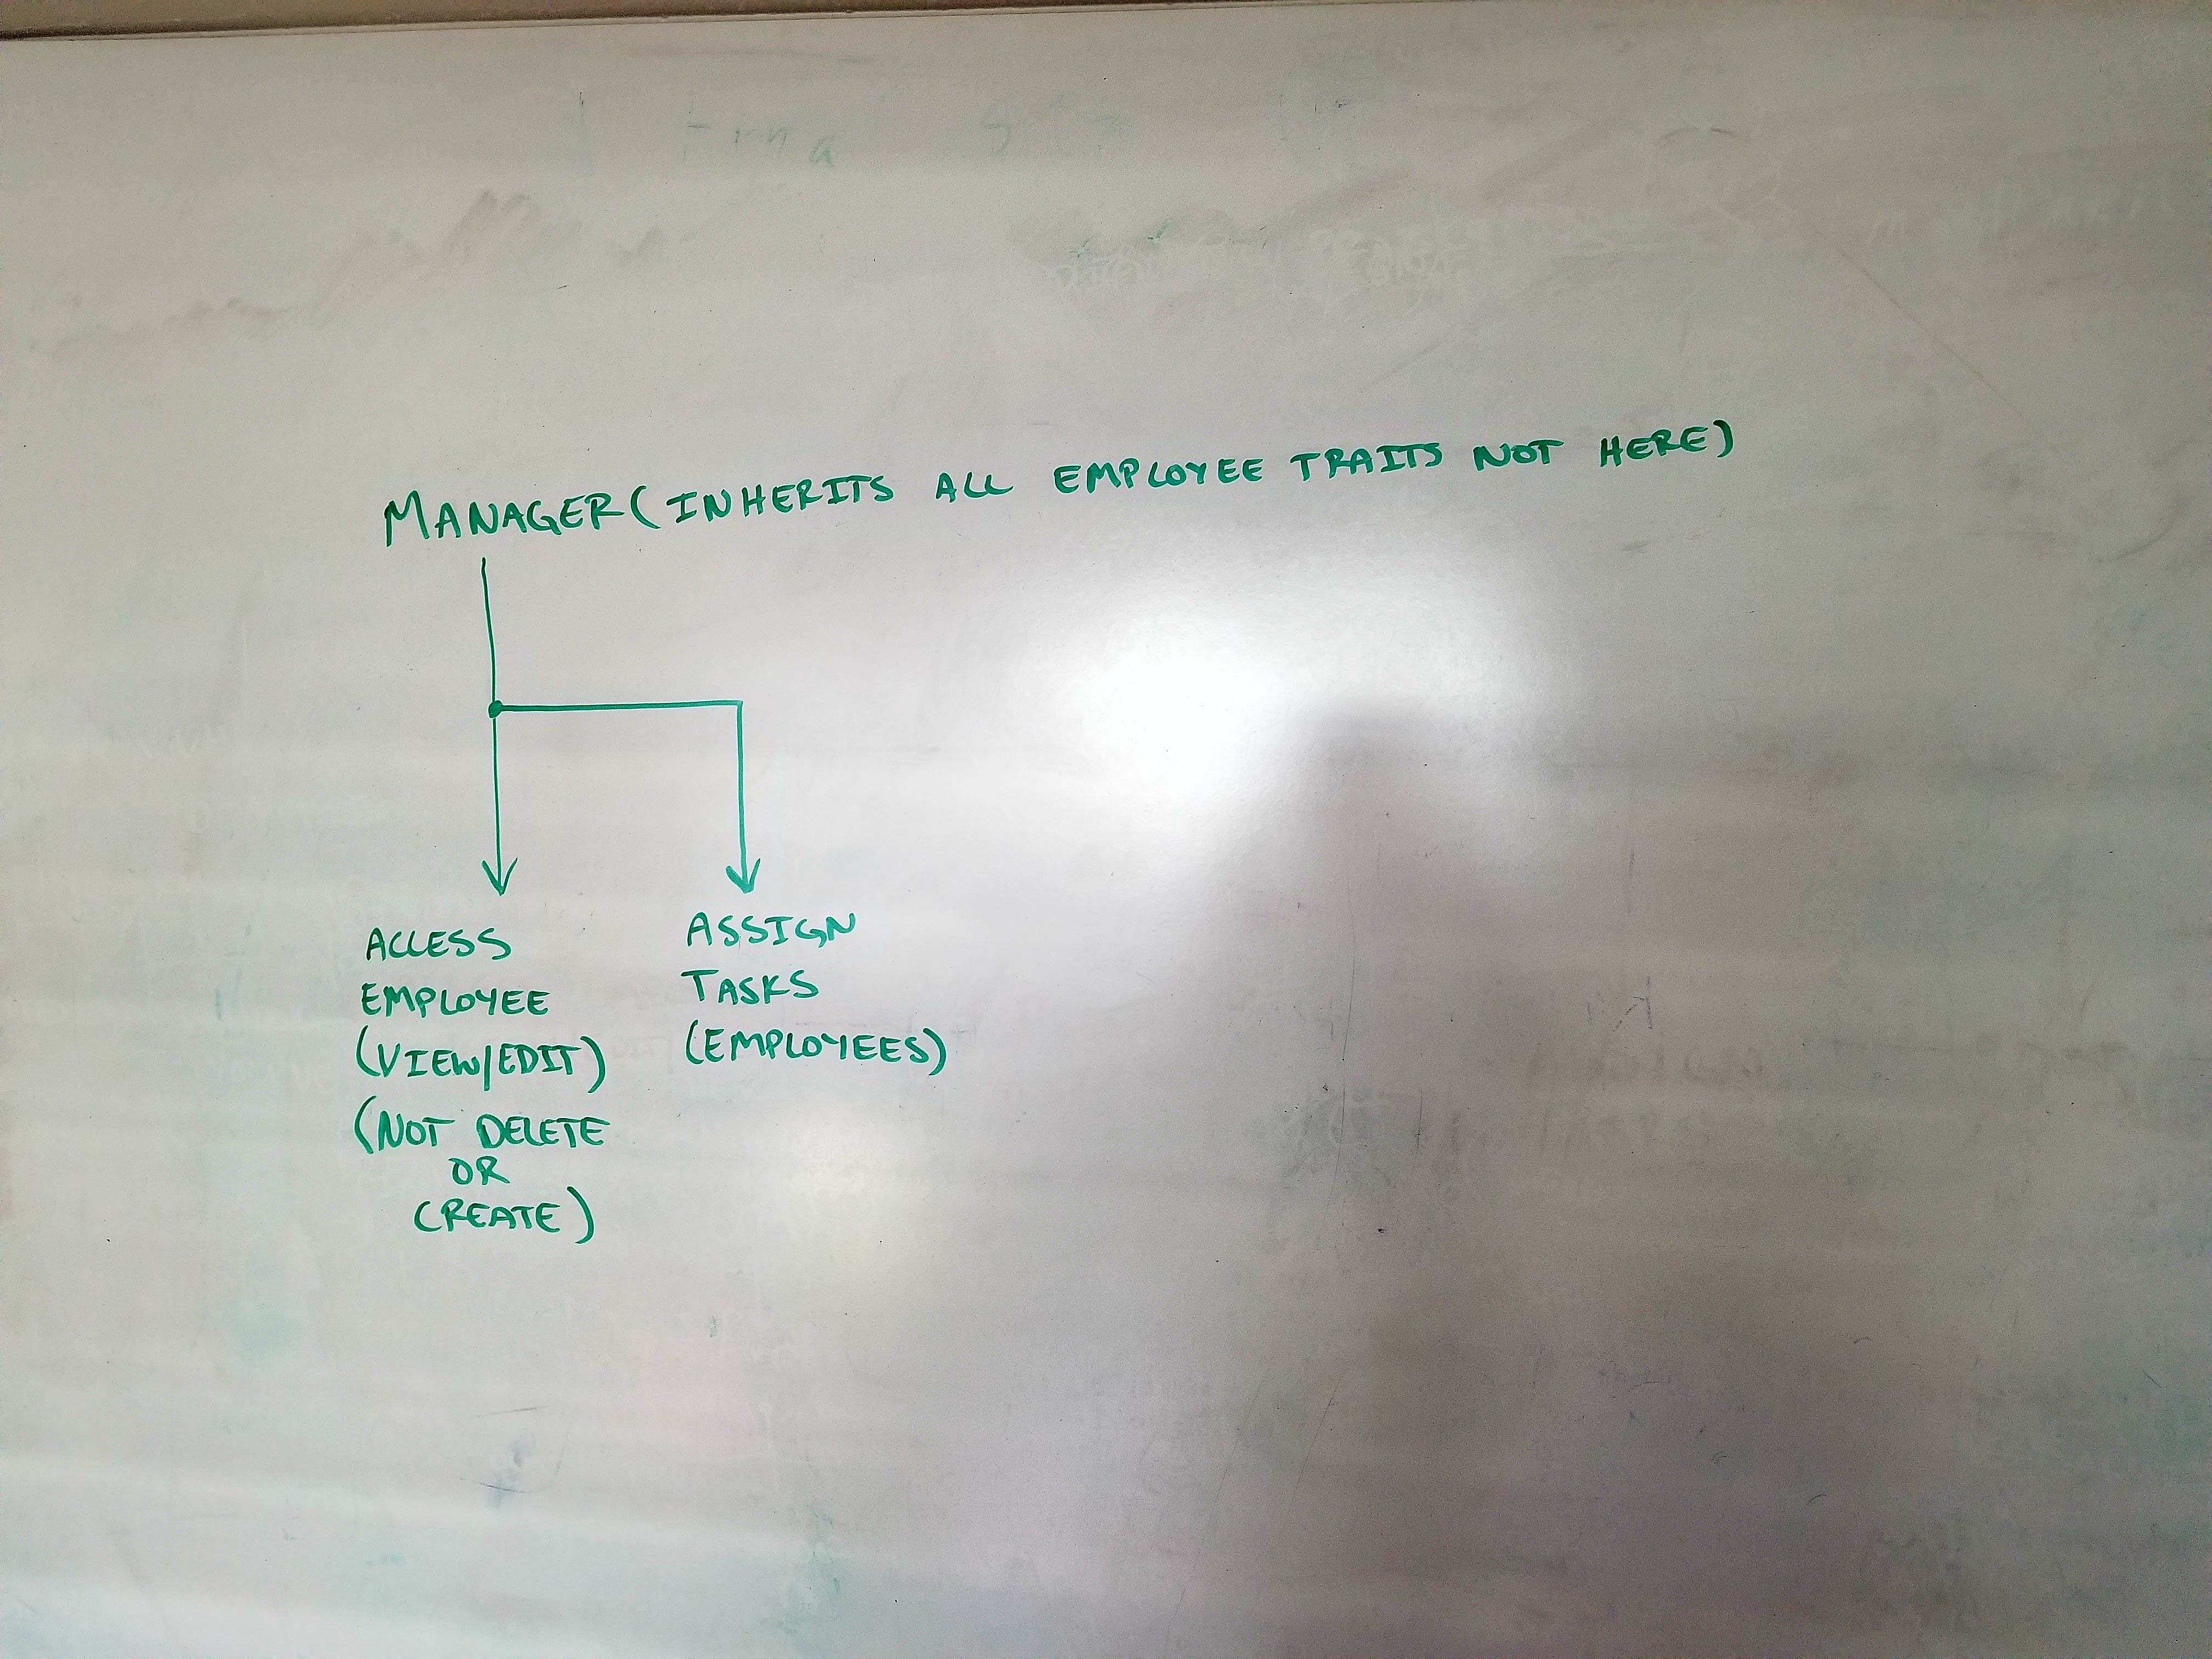 MANAGER (INHERITS ALL EMPLOYEE TRAITS NOT HERE)
ACCESS
EMPLOYEE
(VIEW/EDIT)
(NOT DELETE
OR
CREATE)
ASSIGN
TASKS
(EMPLOYEES)